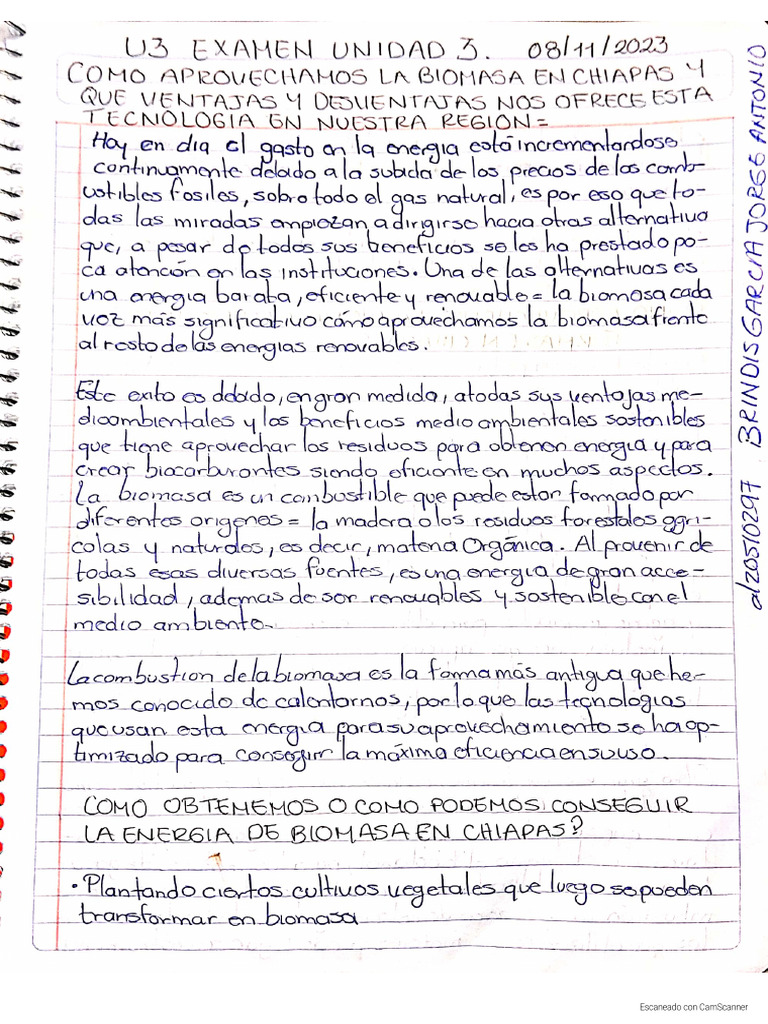 U3 EXAMEN UNIDAD 3. 08/11/2023
COMO APROVECHAMOS LA BIOMASA EN CHIAPAS Y
QUE VENTAJAS Y DESVENTAJAS NOS OFRECE ESTA
TECNOLOGIA EN NUESTRA REGION=
Hoy en dia el gasto en la energia está incrementandose
continuamente debido a la subida de los precios de los comb-
ustibles fosiles, sobre todo el gas natural, es por eso que to-
das las miradas empiezan a dirigirse hacia otras alternativa
que, a pesar de todos sus beneficios se les ha prestado po-
ca atención en las instituciones. Una de las alternativas es
una energia barata, eficiente y renovable= la biomasa cada
vez más significativo cómo aprovechamos la biomasa fiente
al resto de las energias renovables.
Este exito es debido, en gran medida, a todas sus ventajas me-
dioambientales y los beneficios medio ambientales sostenibles
que tiene aprovechar los residuos para obtener energia y para
crear biocarburantes siendo eficiente en muchos aspectos.
La biomasa es un combustible que puede estar formado por
diferentes origenes= la madera o los residuos forestales agri-
colas y naturales, es decir, materia Orgánica. Al provenir de
todas esas diversas fuentes, es una energia de gran acce-
sibilidad, ademas de ser renovables y sostenible con el
medio ambiento.
La combustion de la biomasa es la forma más antigua que he-
mos conocido de calentarnos, por lo que las tecnologias
que usan esta energia para su aprovechamiento se ha op-
timizado para conseguir la máxima eficiencia en su uso.
COMO OBTEMEMOS O COMO PODEMOS CONSEGUIR
LA ENERGIA DE BIOMASA EN CHIAPAS?
• Plantando ciertos cultivos vegetales que luego se pueden
transformar en biomasa
al20510297 BRINDIS GARCIA JORGE ANTONIO
Escaneado con CamScanner